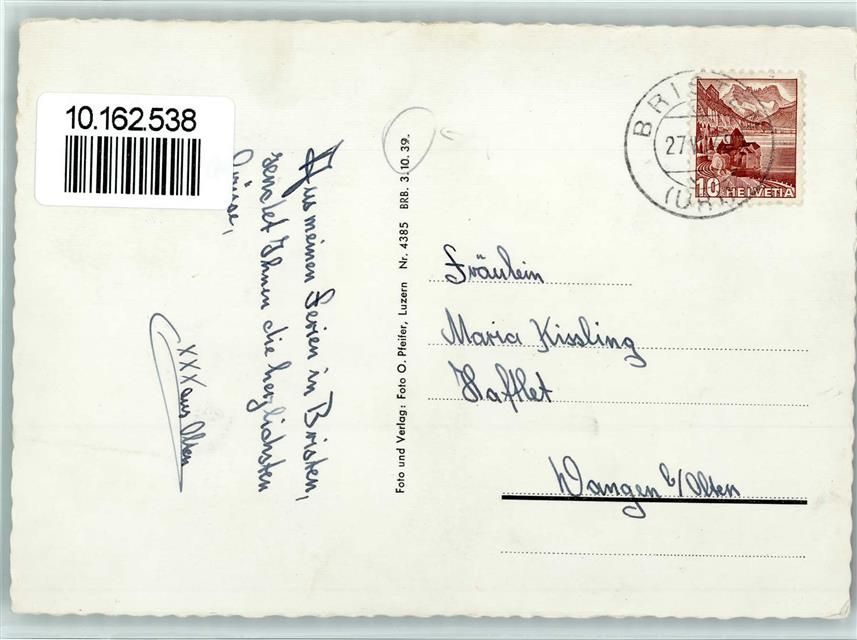 10.162.538
Aus meinen Ferien in Bristen,
sendet Ihnen die herzlichsten
Grüsse,
XXX aus Olten
Foto und Verlag: Foto O. Pfeifer, Luzern Nr. 4385 BRB. 3.10.39.
BRIS
27.VI
(URI)
10 HELVETIA
Fräulein
Maria Kissling
Wangen b/Olten